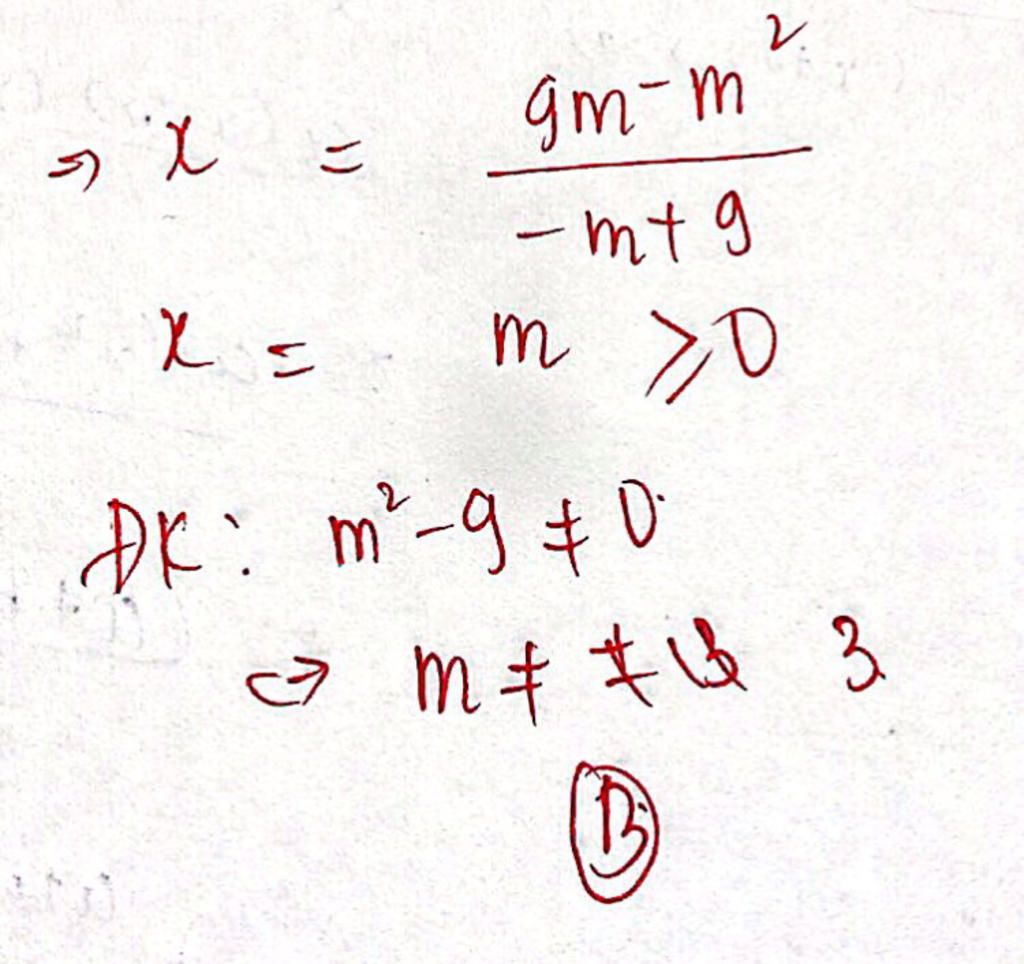 ⇒ x = (9m - m²) / (-m + 9)
x = m ≥ 0
ĐK: m² - 9 ≠ 0
⇔ m ≠ 3
B